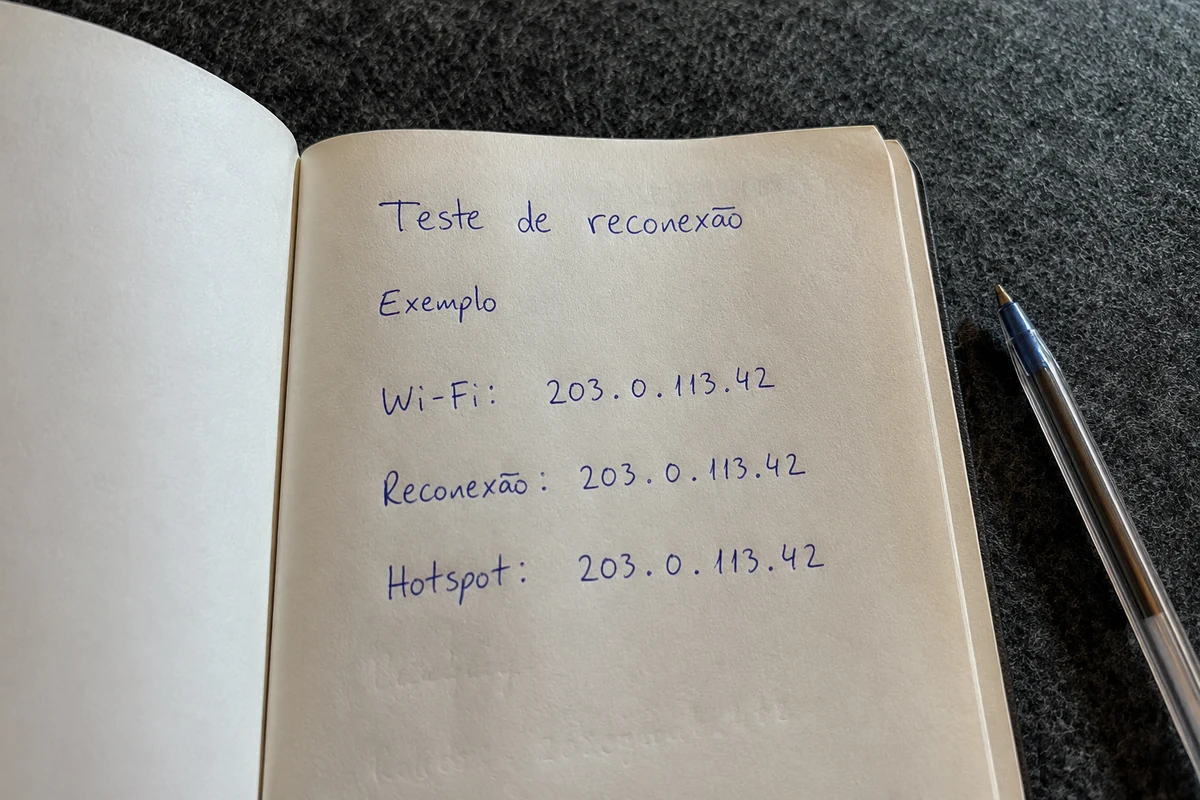 Teste de reconexão
Exemplo
Wi-Fi: 203.0.113.42
Reconexão: 203.0.113.42
Hotspot: 203.0.113.42